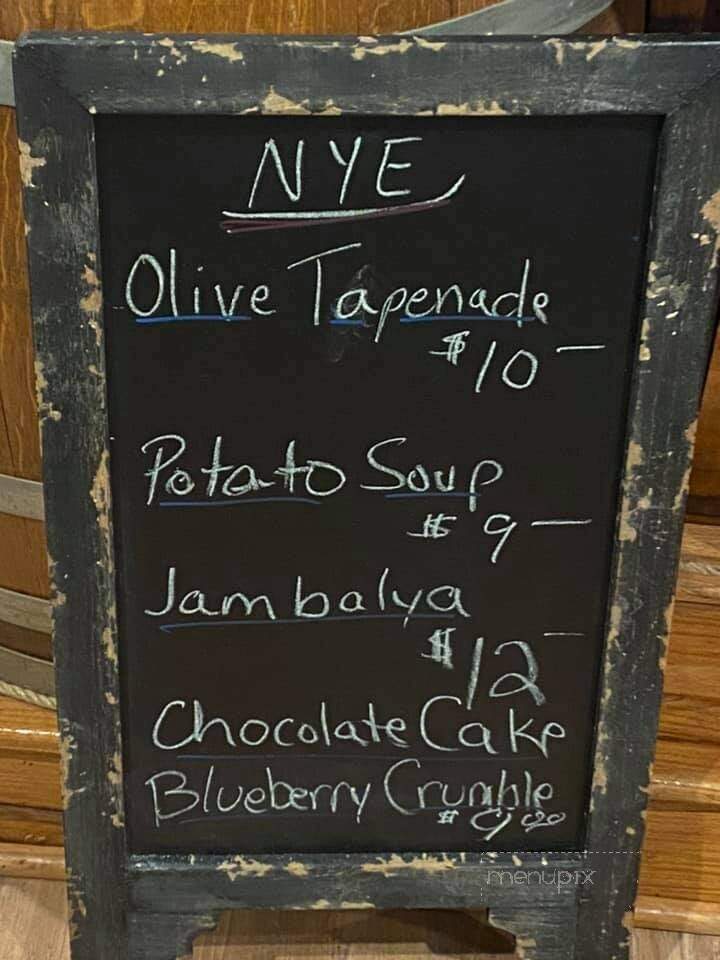 NYE
Olive Tapenade
$10-
Potato Soup
$9-
Jambalya
$12-
Chocolate Cake
Blueberry Crumble
$
menupix